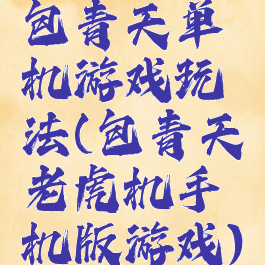 包青天单
机游戏玩
法(包青天
老虎机手
机版游戏)